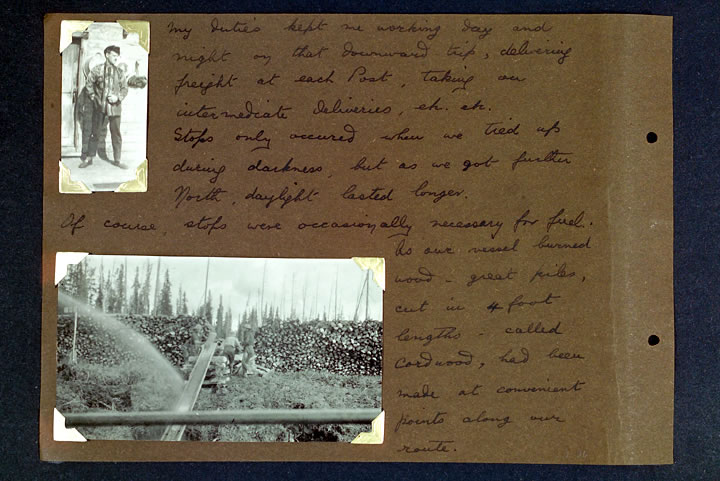 My duties kept me working day and
night on that downward trip, delivering
freight at each Post, taking on
intermediate deliveries, etc. etc.
Stops only occured when we tied up
during darkness, but as we got further
North, daylight lasted longer.
Of course, stops were occasionally necessary for fuel.
As our vessel burned
wood - great piles,
cut in 4 foot
lengths - called
Cordwood, had been
made at convenient
points along our
route.